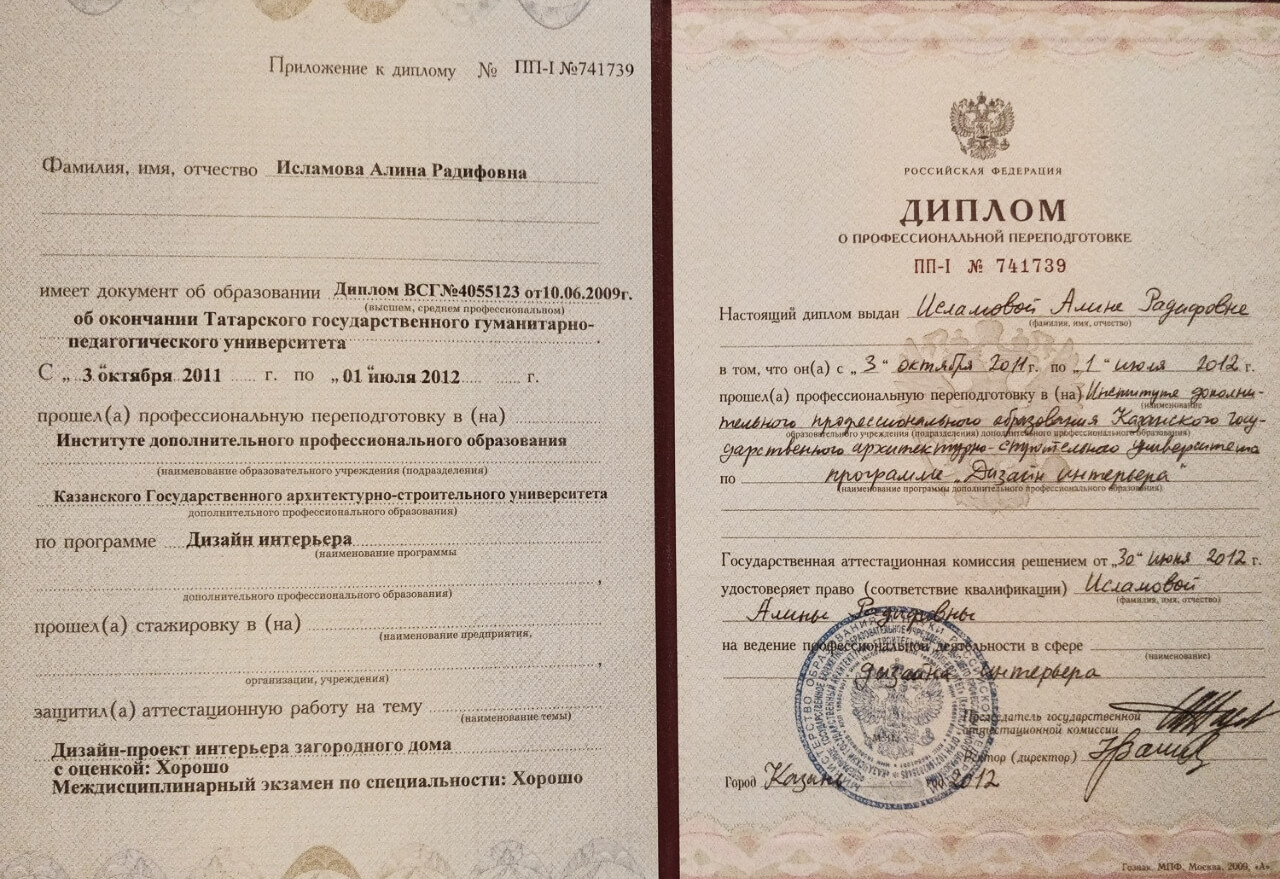 Приложение к диплому № ПП-I №741739
Фамилия, имя, отчество Исламова Алина Радифовна
имеет документ об образовании Диплом ВСГ№4055123 от10.06.2009г.
(высшем, среднем профессиональном)
об окончании Татарского государственного гуманитарно-
педагогического университета
С „ 3 " октября 2011 г. по „ 01 " июля 2012 г.
прошел(а) профессиональную переподготовку в (на)
Институте дополнительного профессионального образования
(наименование образовательного учреждения (подразделения)
Казанского Государственного архитектурно-строительного университета
дополнительного профессионального образования)
по программе Дизайн интерьера
(наименование программы
,
дополнительного профессионального образования)
прошел(а) стажировку в (на)
(наименование предприятия,
,
организации, учреждения)
защитил(а) аттестационную работу на тему
(наименование темы)
Дизайн-проект интерьера загородного дома
с оценкой: Хорошо
Междисциплинарный экзамен по специальности: Хорошо
РОССИЙСКАЯ ФЕДЕРАЦИЯ
ДИПЛОМ
О ПРОФЕССИОНАЛЬНОЙ ПЕРЕПОДГОТОВКЕ
ПП-I № 741739
Настоящий диплом выдан Исламовой Алине Радифовне
(фамилия, имя, отчество)
в том, что он(а) с „ 3 " октября 2011 г. по „ 1 " июля 2012 г.
прошел(а) профессиональную переподготовку в (на) Институте дополни-
(наименование
тельного профессионального образования Казанского госу-
образовательного учреждения (подразделения) дополнительного профессионального образования)
дарственного архитектурно-строительного университета
по программе „Дизайн интерьера"
(наименование программы дополнительного профессионального образования)
Государственная аттестационная комиссия решением от „30" июня 2012 г.
удостоверяет право (соответствие квалификации) Исламовой
(фамилия, имя, отчество)
Алины Радифовны
на ведение профессиональной деятельности в сфере
(наименование)
дизайна интерьера
Председатель государственной
аттестационной комиссии
Ректор (директор)
Город Казань 2012
Гознак, МПФ, Москва, 2009, «А»